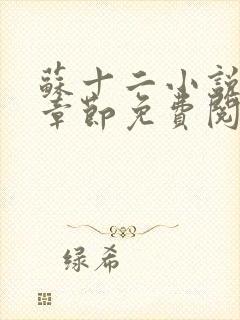 蘇十二小說
章節免費閱
绿希